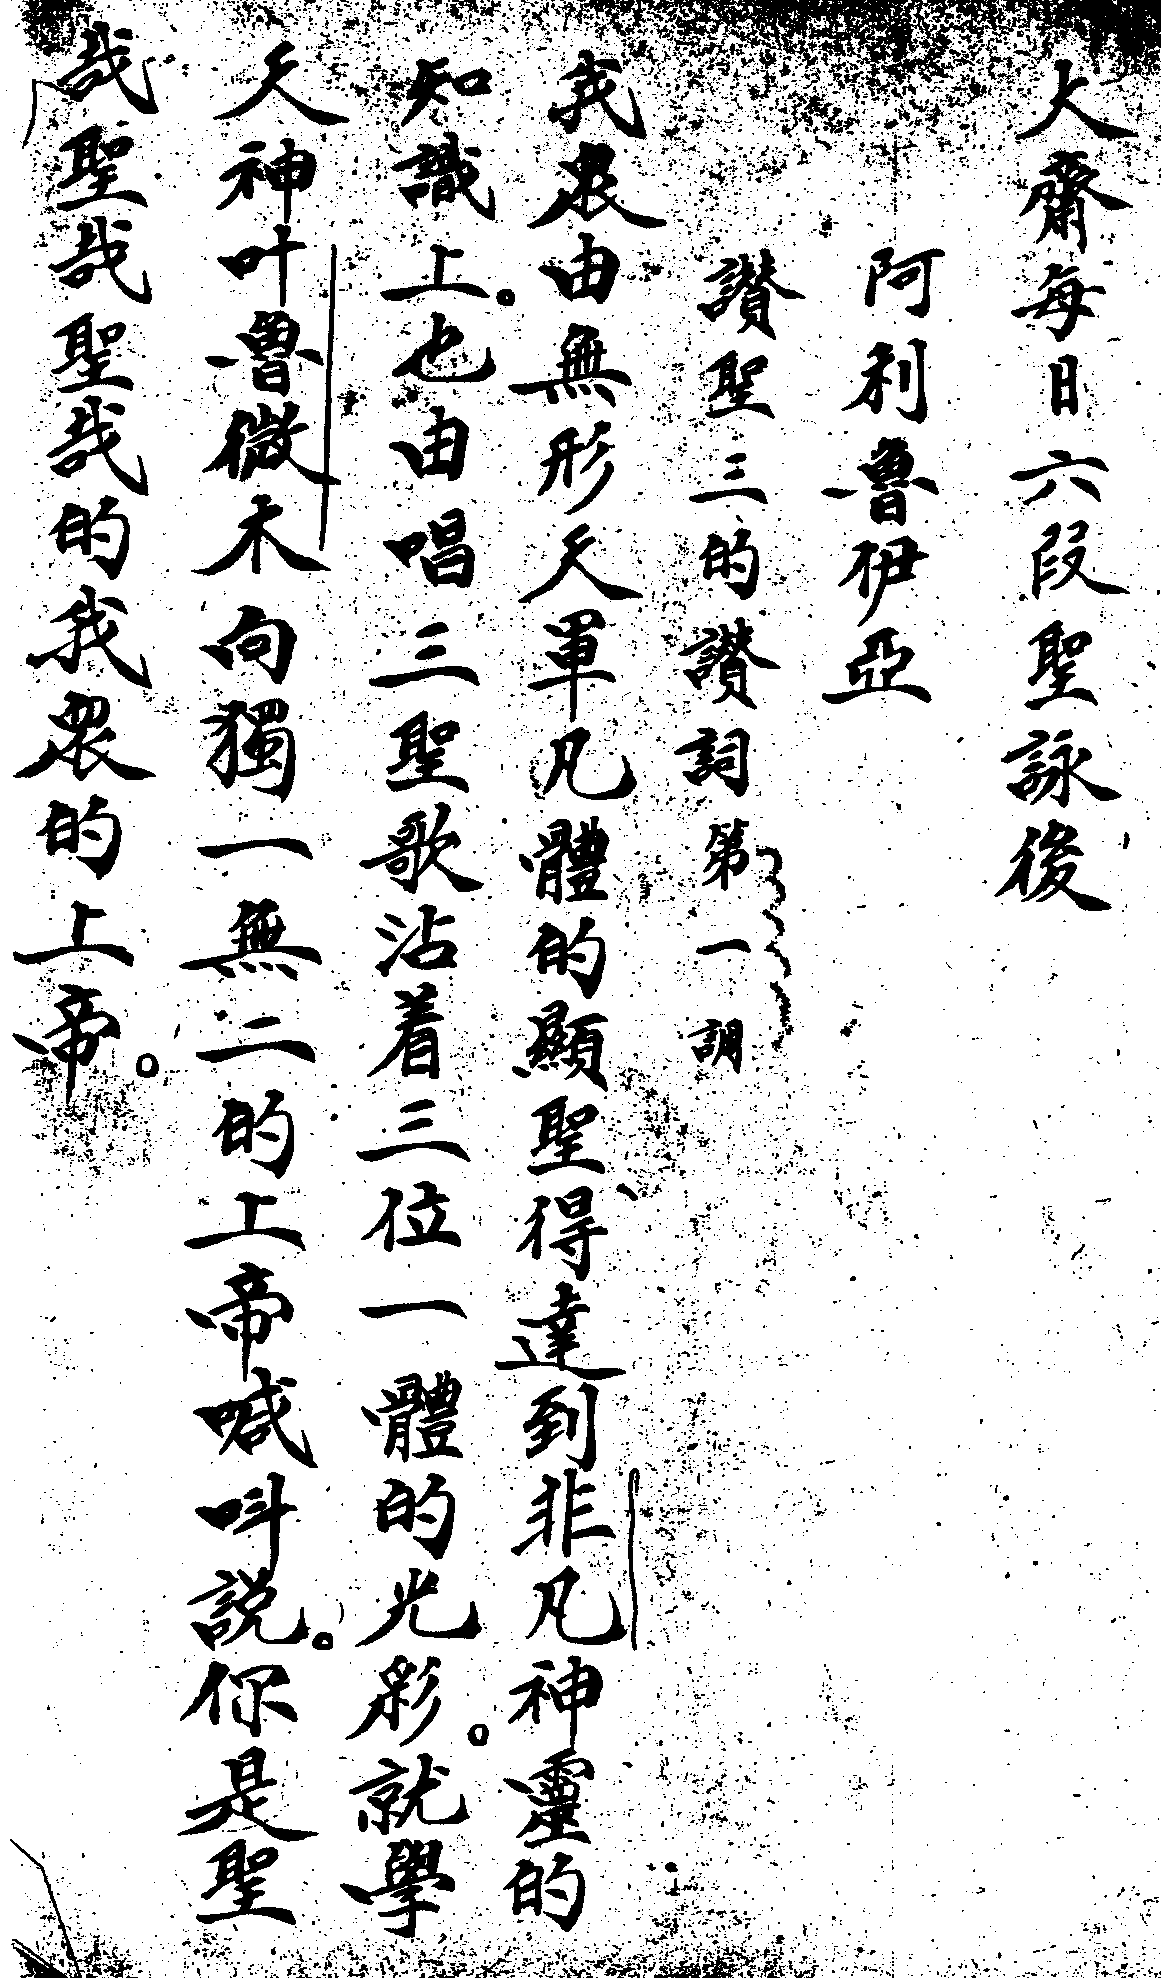 大齋每日六段聖詠後
阿利魯伊亞
讚聖三的讚詞第一調
我眾由無形天軍凡體的顯聖、得達到非凡神靈的
知識上。也由唱三聖歌沾着三位一體的光彩。就學
天神叶魯微木向獨一無二的上帝喊呌説。你是聖
哉聖哉聖哉的我眾的上帝。